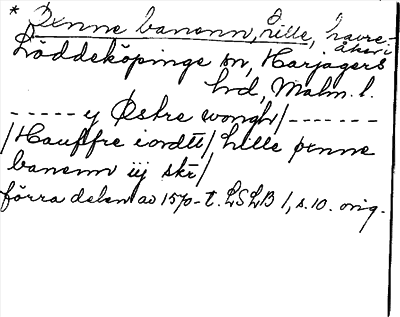 * Penne banenn, lille, havre-
åker i
Löddeköpinge sn, Harjagers
hd, Malm. l.
----- y Östre wongh/-------
/Hauffre iordtt/ Lille penne
banenn iij skr/
förra delen av 1570-t. LSLB 1, s. 10. orig.